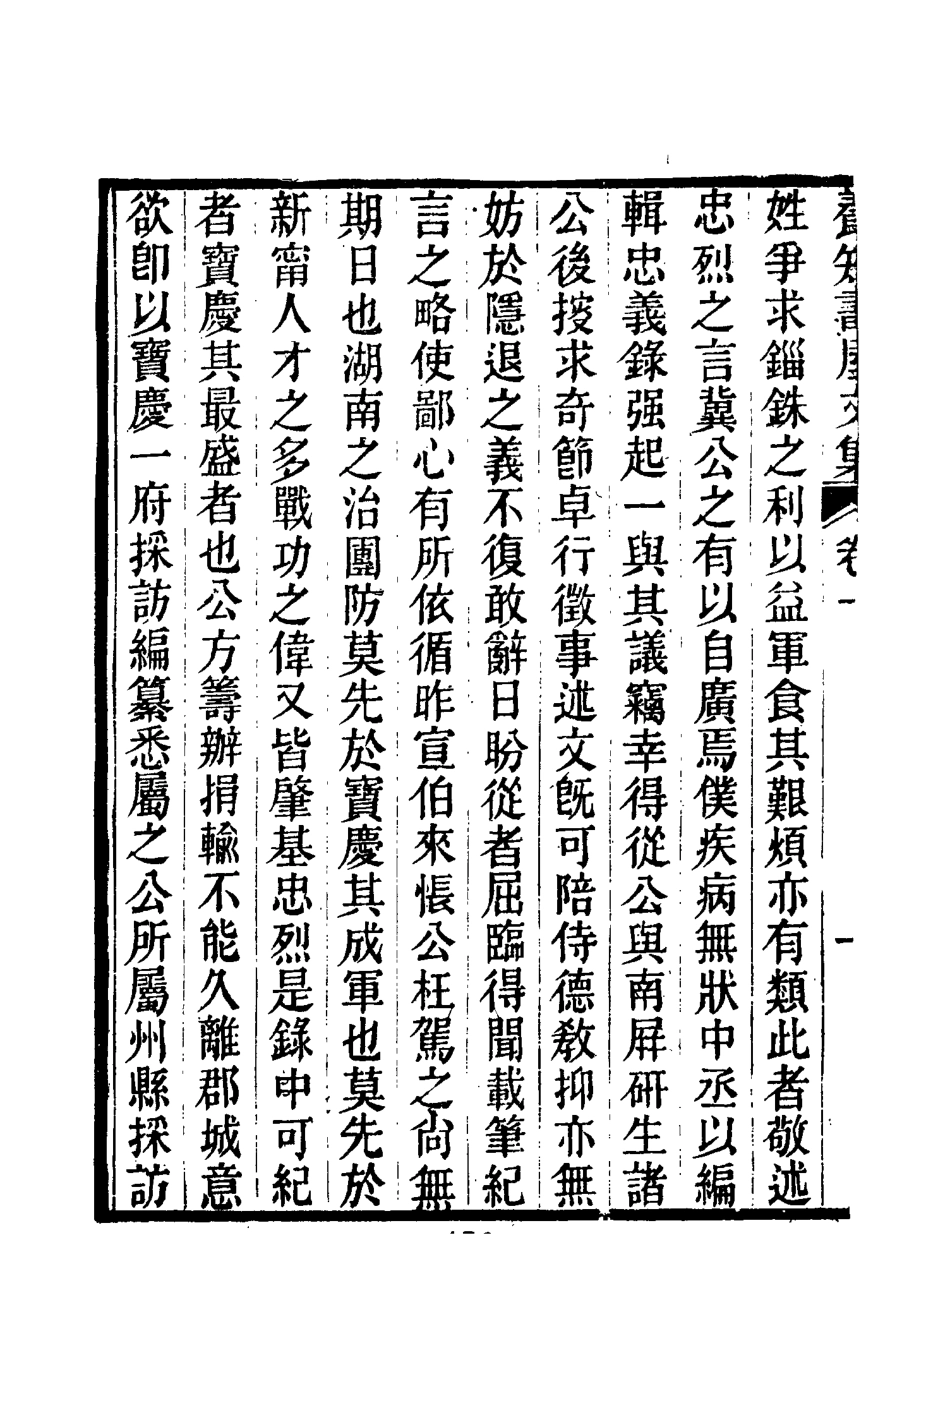 養知書屋文集 卷一 一
姓爭求錙銖之利以益軍食其艱煩亦有類此者敬述
忠烈之言冀公之有以自廣焉僕疾病無狀中丞以編
輯忠義錄强起一與其議竊幸得從公與南屛硏生諸
公後搜求奇節卓行徵事述文旣可陪侍德敎抑亦無
妨於隱退之義不復敢辭日盼從者屈臨得聞載筆紀
言之略使鄙心有所依循昨宣伯來悵公枉駕之尙無
期日也湖南之治團防莫先於寶慶其成軍也莫先於
新甯人才之多戰功之偉又皆肇基忠烈是錄中可紀
者寶慶其最盛者也公方籌辦捐輸不能久離郡城意
欲卽以寶慶一府採訪編纂悉屬之公所屬州縣採訪